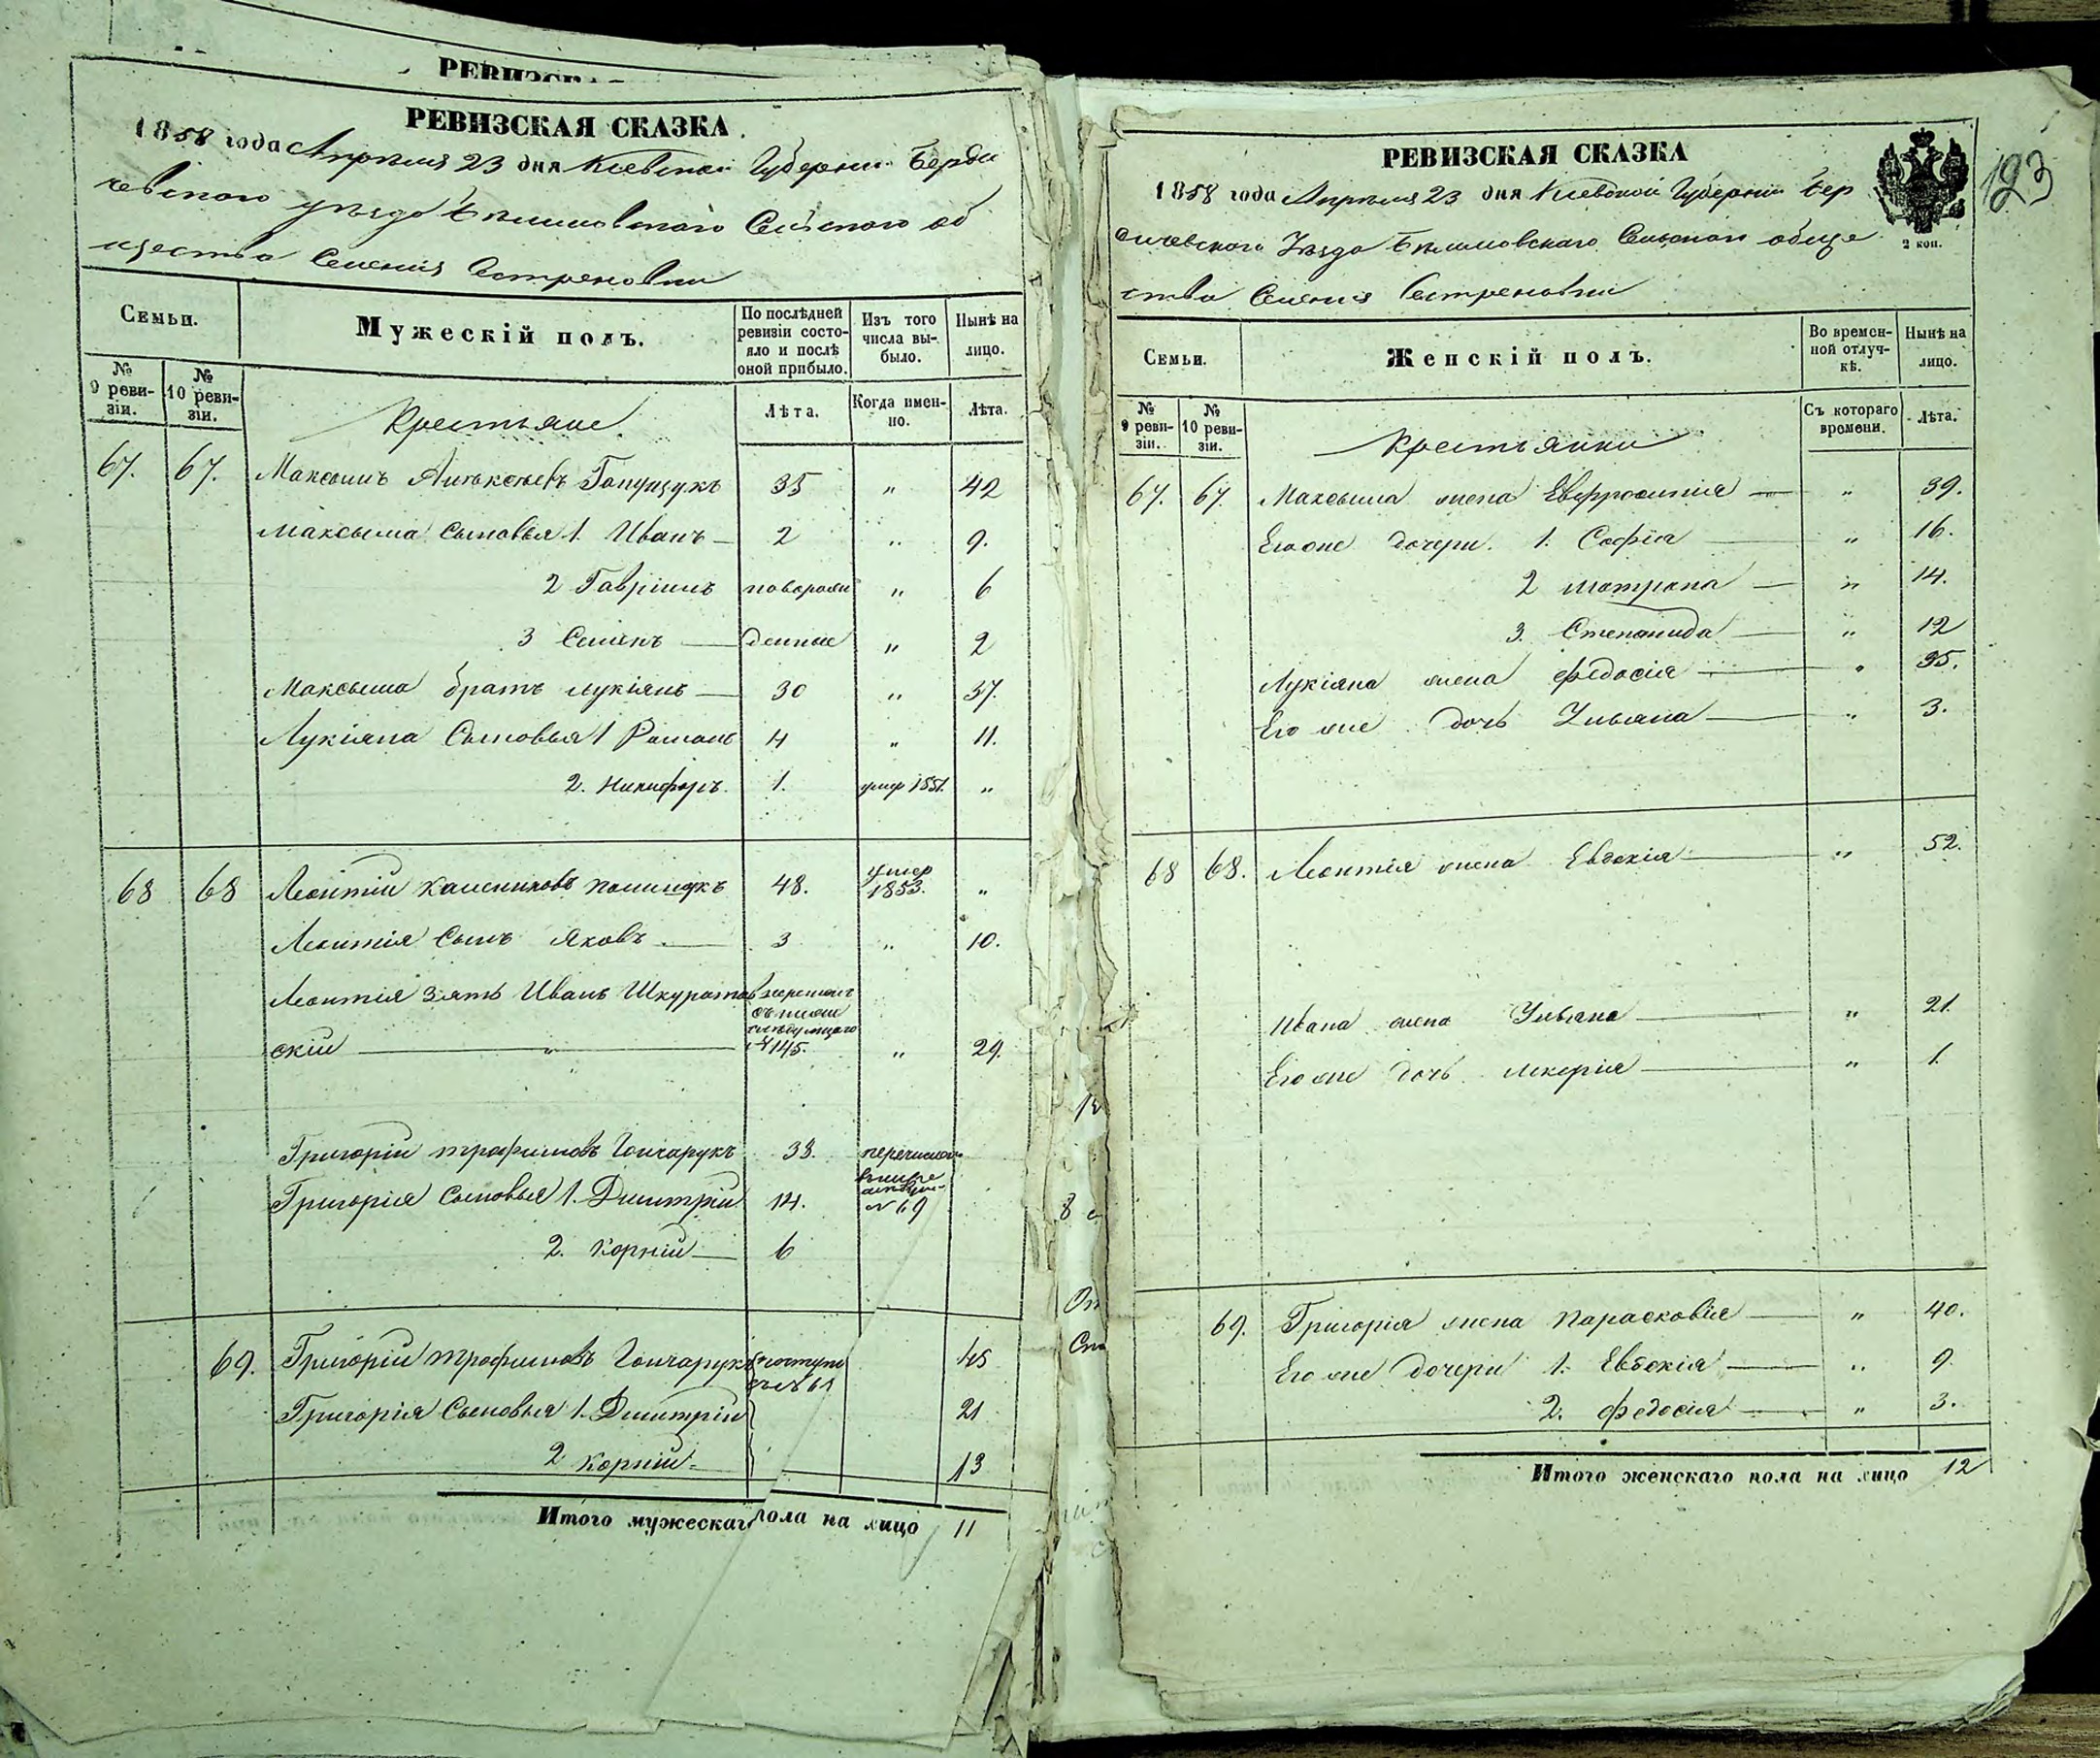 РЕВИЗСКАЯ СКАЗКА
1858 года Апреля 23 дня Киевской Губернии Берди
чевского уезда Сельского об
щества Селения
Семьи.
Мужескій полъ.
По послѣдней ревизіи состояло и послѣ оной прибыло.
Изъ того числа выбыло.
Нынѣ на лицо.
№ 9 ревизіи.
№ 10 ревизіи.
Крестьяне
Лѣта.
Когда именно.
Лѣта.
67. 67. Максимъ Алексѣевъ 35 " 42
Максыма Сыновья 1. Иванъ 2 " 9.
2 Гавріилъ новорож " 6
3 Семенъ денные " 2
Максыма братъ Лукіянъ 30 " 37.
Лукіяна Сыновья 1 Романъ 4 " 11.
2. Никифоръ 1. умер 1851. "
68 68 Леонтій 48. умер 1853. "
Леонтія Сынъ Яковъ 3 " 10.
Леонтія Зять Иванъ Шкуратов
скій " № 145. " 29.
Григорій Трофимовъ Гончарукъ 38. перечислен
Григорія Сыновья 1. Дмитрій 14. № 69
2. Корній 6
69. Григорій Трофимовъ Гончарукъ 45
Григорія Сыновья 1. Дмитрій 21
2 Корній 13
Итого мужескаго пола на лицо 11
РЕВИЗСКАЯ СКАЗКА
1858 года Апреля 23 дня Киевской Губернии Бер
дичевского Уезда Сельского обще
ства Селения
2 коп.
123
Семьи.
Женскій полъ.
Во временной отлучкѣ.
Нынѣ на лицо.
№ 9 ревизіи.
№ 10 ревизіи.
Крестьянки
Съ котораго времени.
Лѣта.
67. 67. Максыма жена Евфросинія " 39.
Его же дочери. 1. Софія " 16.
2 Матрона " 14.
3. Степанида " 12
Лукіяна жена Федосія " 35.
Его же дочь Ульяна " 3.
68 68. Леонтія жена Евдокія " 52.
Ивана жена Ульяна " 21.
Его же дочь " 1.
69. Григорія жена Парасковія " 40.
Его же дочери 1. Евдокія " 9
2. Федосія " 3.
Итого женскаго пола на лицо 12